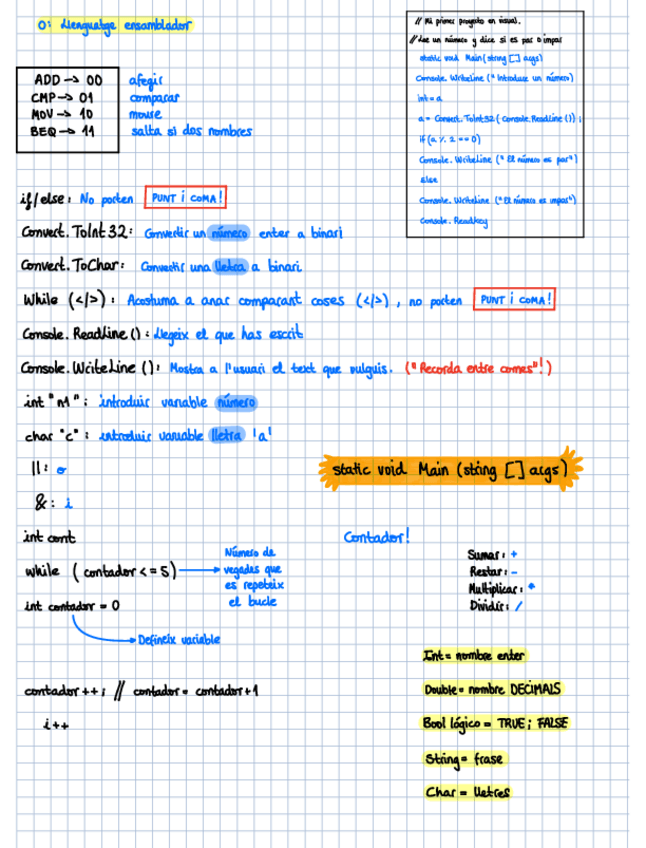 0: Llenguatge ensamblador
ADD -> 00 afegir
CMP -> 01 comparar
MOV -> 10 moure
BEQ -> 11 salta si dos nombres
// Mi primer proyecto en visual.
// Lee un número y dice si es par o impar
static void Main (string [] args)
Console. WriteLine (" Introduce un número)
int = a
a = Convert. ToInt32 ( Console. ReadLine ()) ;
if (a % 2 == 0)
Console. WriteLine (" El número es par")
Else
Console. WriteLine ("El número es impar")
Console. ReadKey
if/else: No porten PUNT i COMA!
Convert. ToInt 32: Convertir un número enter a binari
Convert. ToChar: Convertir una lletra a binari
While (</>): Acostuma a anar comparant coses (</>), no porten PUNT i COMA!
Console. ReadLine (): Llegeix el que has escrit
Console. WriteLine (): Mostra a l'usuari el text que vulguis. ("Recorda entre comes"!)
int "n1": introduir variable número
char "c": introduir variable lletra 'a'
||: o
static void Main (string [] args)
&: i
int cont
while ( contador <= 5)
Número de
vegades que
es repeteix
el bucle
int contador = 0
Defineix variable
contador ++; // contador = contador+1
i++
Contador!
Sumar: +
Restar: -
Multiplicar: *
Dividir: /
Int = nombre enter
Double = nombre DECIMALS
Bool lógico = TRUE; FALSE
String = frase
Char = lletres